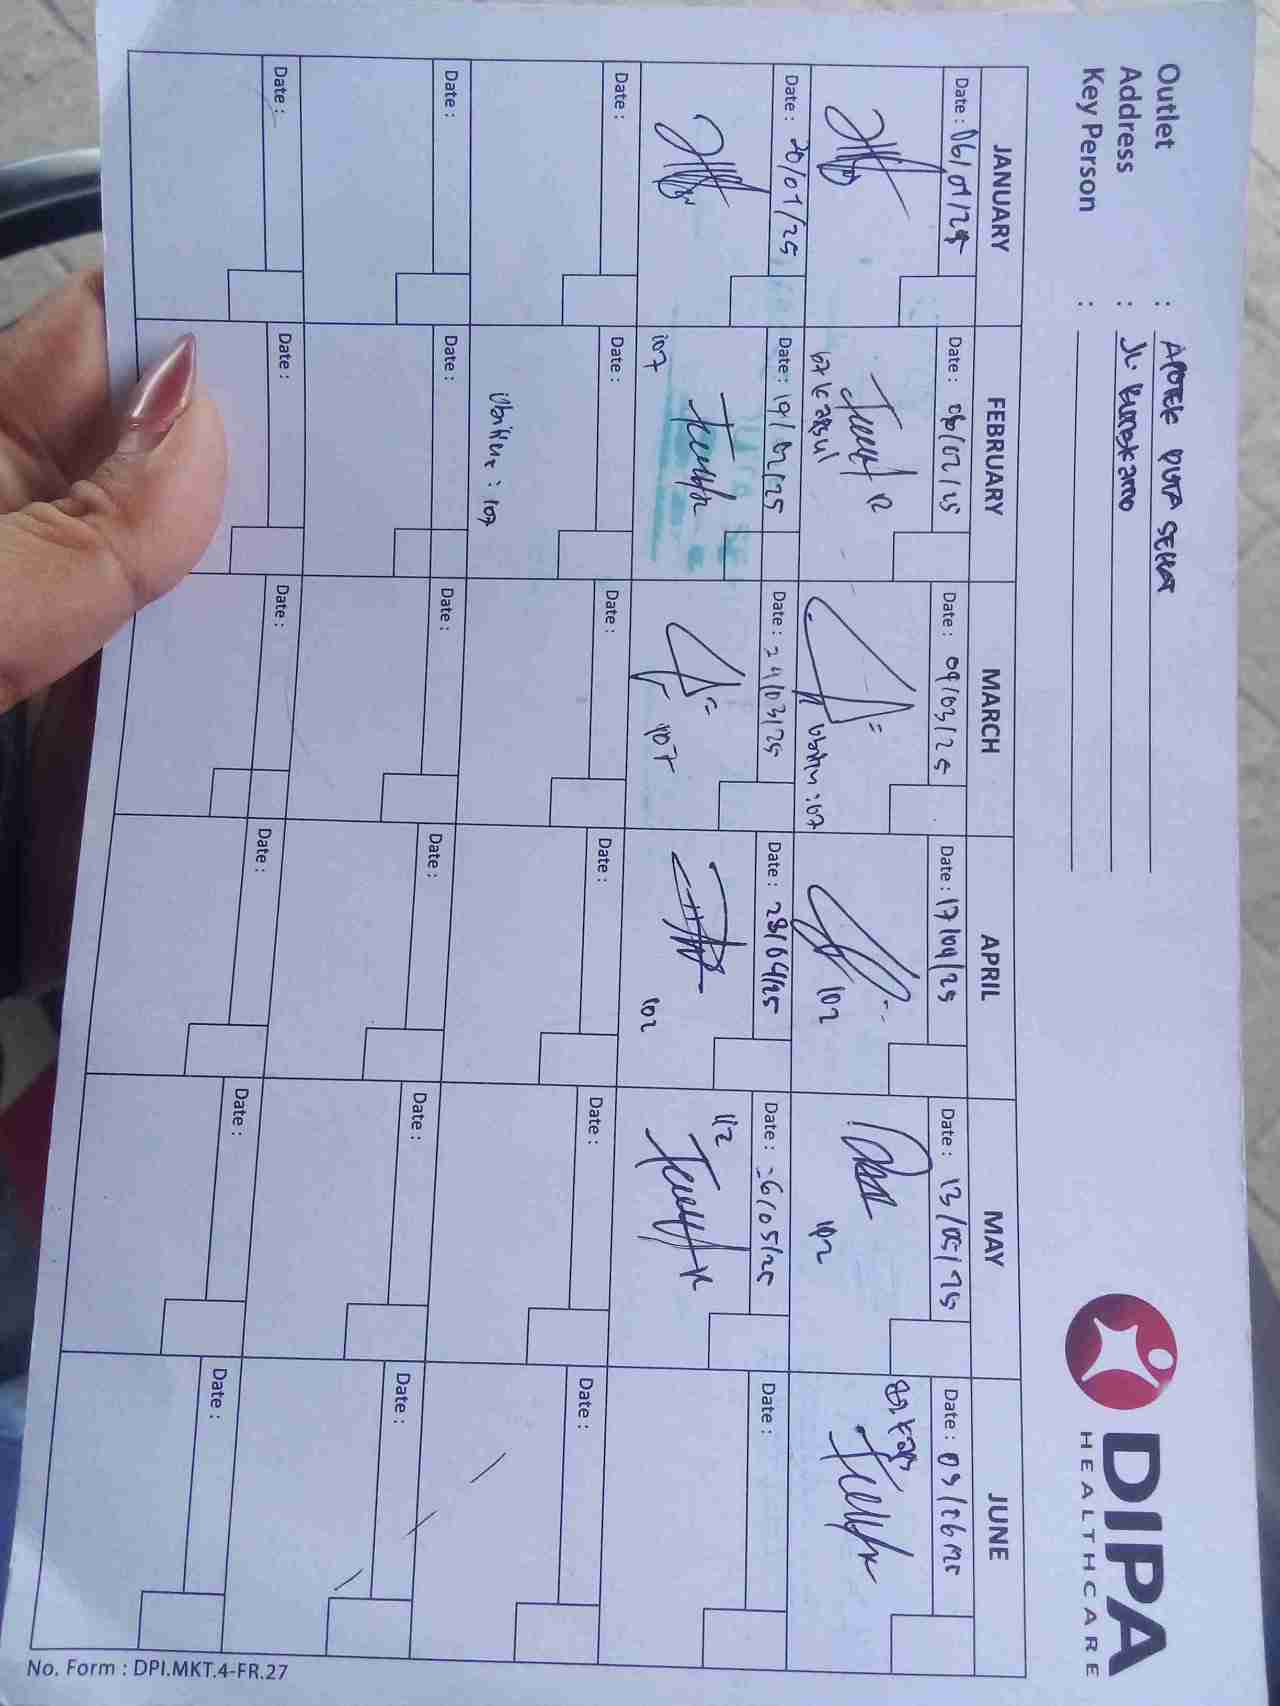 Outlet : APOTEK DUTA SEHAT
Address : JL.
Key Person :
DIPA
HEALTHCARE
JANUARY FEBRUARY MARCH APRIL MAY JUNE
Date : 06/01/25 Date : 06/02/25 Date : 09/03/25 Date : 17/04/25 Date : 13/05/25 Date : 09/06/25
107 102 102
Date : 20/01/25 Date : 19/02/25 Date : 24/03/25 Date : 28/04/25 Date : 26/05/25 Date :
107 107 102 112
Date : Date : Date : Date : Date : Date :
: 107
Date : Date : Date : Date : Date : Date :
Date : Date : Date : Date : Date : Date :
No. Form : DPI.MKT.4-FR.27